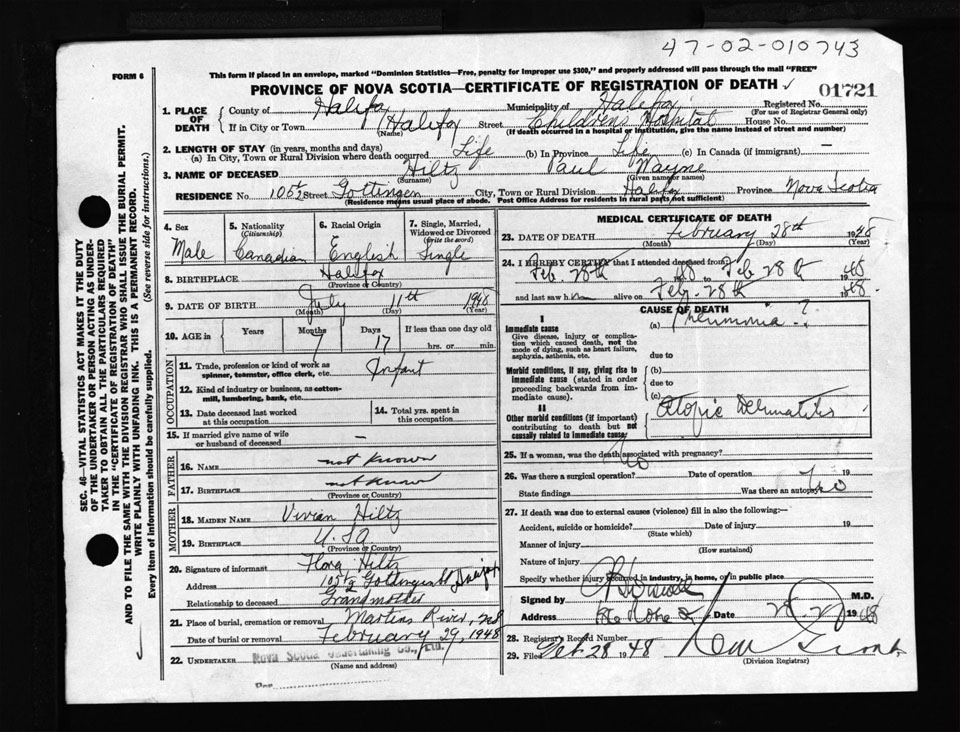 47-02-010743
FORM 6
This form if placed in an envelope, marked "Dominion Statistics—Free, penalty for improper use $300," and properly addressed will pass through the mail "FREE"
PROVINCE OF NOVA SCOTIA—CERTIFICATE OF REGISTRATION OF DEATH
01721
1. PLACE OF DEATH
County of Halifax Municipality of Halifax Registered No.
(For use of Registrar General only)
If in City or Town Halifax Street Childrens Hospital House No.
(Name) (If death occurred in a hospital or institution, give the name instead of street and number)
2. LENGTH OF STAY (in years, months and days)
(a) In City, Town or Rural Division where death occurred Life (b) In Province Life (c) In Canada (if immigrant) —
3. NAME OF DECEASED Hiltz Paul Wayne
(Surname) (Given name or names)
RESIDENCE No. 105½ Street Gottingen City, Town or Rural Division Halifax Province Nova Scotia
(Residence means usual place of abode. Post Office Address for residents in rural parts not sufficient)
4. Sex
Male
5. Nationality
(Citizenship)
Canadian
6. Racial Origin
English
7. Single, Married, Widowed or Divorced
(write the word)
Single
8. BIRTHPLACE Halifax
(Province or Country)
9. DATE OF BIRTH July 11th 1948
(Month) (Day) (Year)
10. AGE in Years Months Days If less than one day old
7 17 hrs. or min.
OCCUPATION
11. Trade, profession or kind of work as spinner, teamster, office clerk, etc. Infant
12. Kind of industry or business, as cotton-mill, lumbering, bank, etc.
13. Date deceased last worked at this occupation
14. Total yrs. spent in this occupation
15. If married give name of wife or husband of deceased —
FATHER
16. NAME not known
17. BIRTHPLACE not know
(Province or Country)
MOTHER
18. MAIDEN NAME Vivian Hiltz
19. BIRTHPLACE USA
(Province or Country)
20. Signature of informant Flora Hiltz
Address 105½ Gottingen St Halifax
Relationship to deceased Grandmother
21. Place of burial, cremation or removal Martins River, NS
Date of burial or removal February 29, 1948
22. UNDERTAKER Nova Scotia Undertaking Co., Ltd.
(Name and address)
Per
MEDICAL CERTIFICATE OF DEATH
23. DATE OF DEATH February 28th 1948
(Month) (Day) (Year)
24. I HEREBY CERTIFY that I attended deceased from
Feb. 28th 48 to Feb 28th 1948
and last saw him alive on Feb. 28th 1948
CAUSE OF DEATH
I
Immediate cause
Give disease, injury or complication which caused death, not the mode of dying, such as heart failure, asphyxia, asthenia, etc.
(a) Pneumonia ?
due to
Morbid conditions, if any, giving rise to immediate cause (stated in order proceeding backwards from immediate cause).
(b)
due to
(c)
II
Other morbid conditions (if important) contributing to death but not causally related to immediate cause.
Atopic Dermatitis
25. If a woman, was the death associated with pregnancy?
No
26. Was there a surgical operation? Date of operation 19
State findings Was there an autopsy? No
27. If death was due to external causes (violence) fill in also the following:—
Accident, suicide or homicide? Date of injury 19
(State which)
Manner of injury
(How sustained)
Nature of injury
Specify whether injury occurred in industry, in home, or in public place
Signed by M.D.
Address Date 1948
28. Registrar's Record Number
29. Filed Feb 28 1948
(Division Registrar)
SEC. 46—VITAL STATISTICS ACT MAKES IT THE DUTY
OF THE UNDERTAKER OR PERSON ACTING AS UNDER-
TAKER TO OBTAIN ALL THE PARTICULARS REQUIRED
IN THE "CERTIFICATE OF REGISTRATION OF DEATH"
AND TO FILE THE SAME WITH THE DIVISION REGISTRAR WHO SHALL ISSUE THE BURIAL PERMIT.
WRITE PLAINLY WITH UNFADING INK. THIS IS A PERMANENT RECORD.
Every item of information should be carefully supplied. (See reverse side for instructions.)